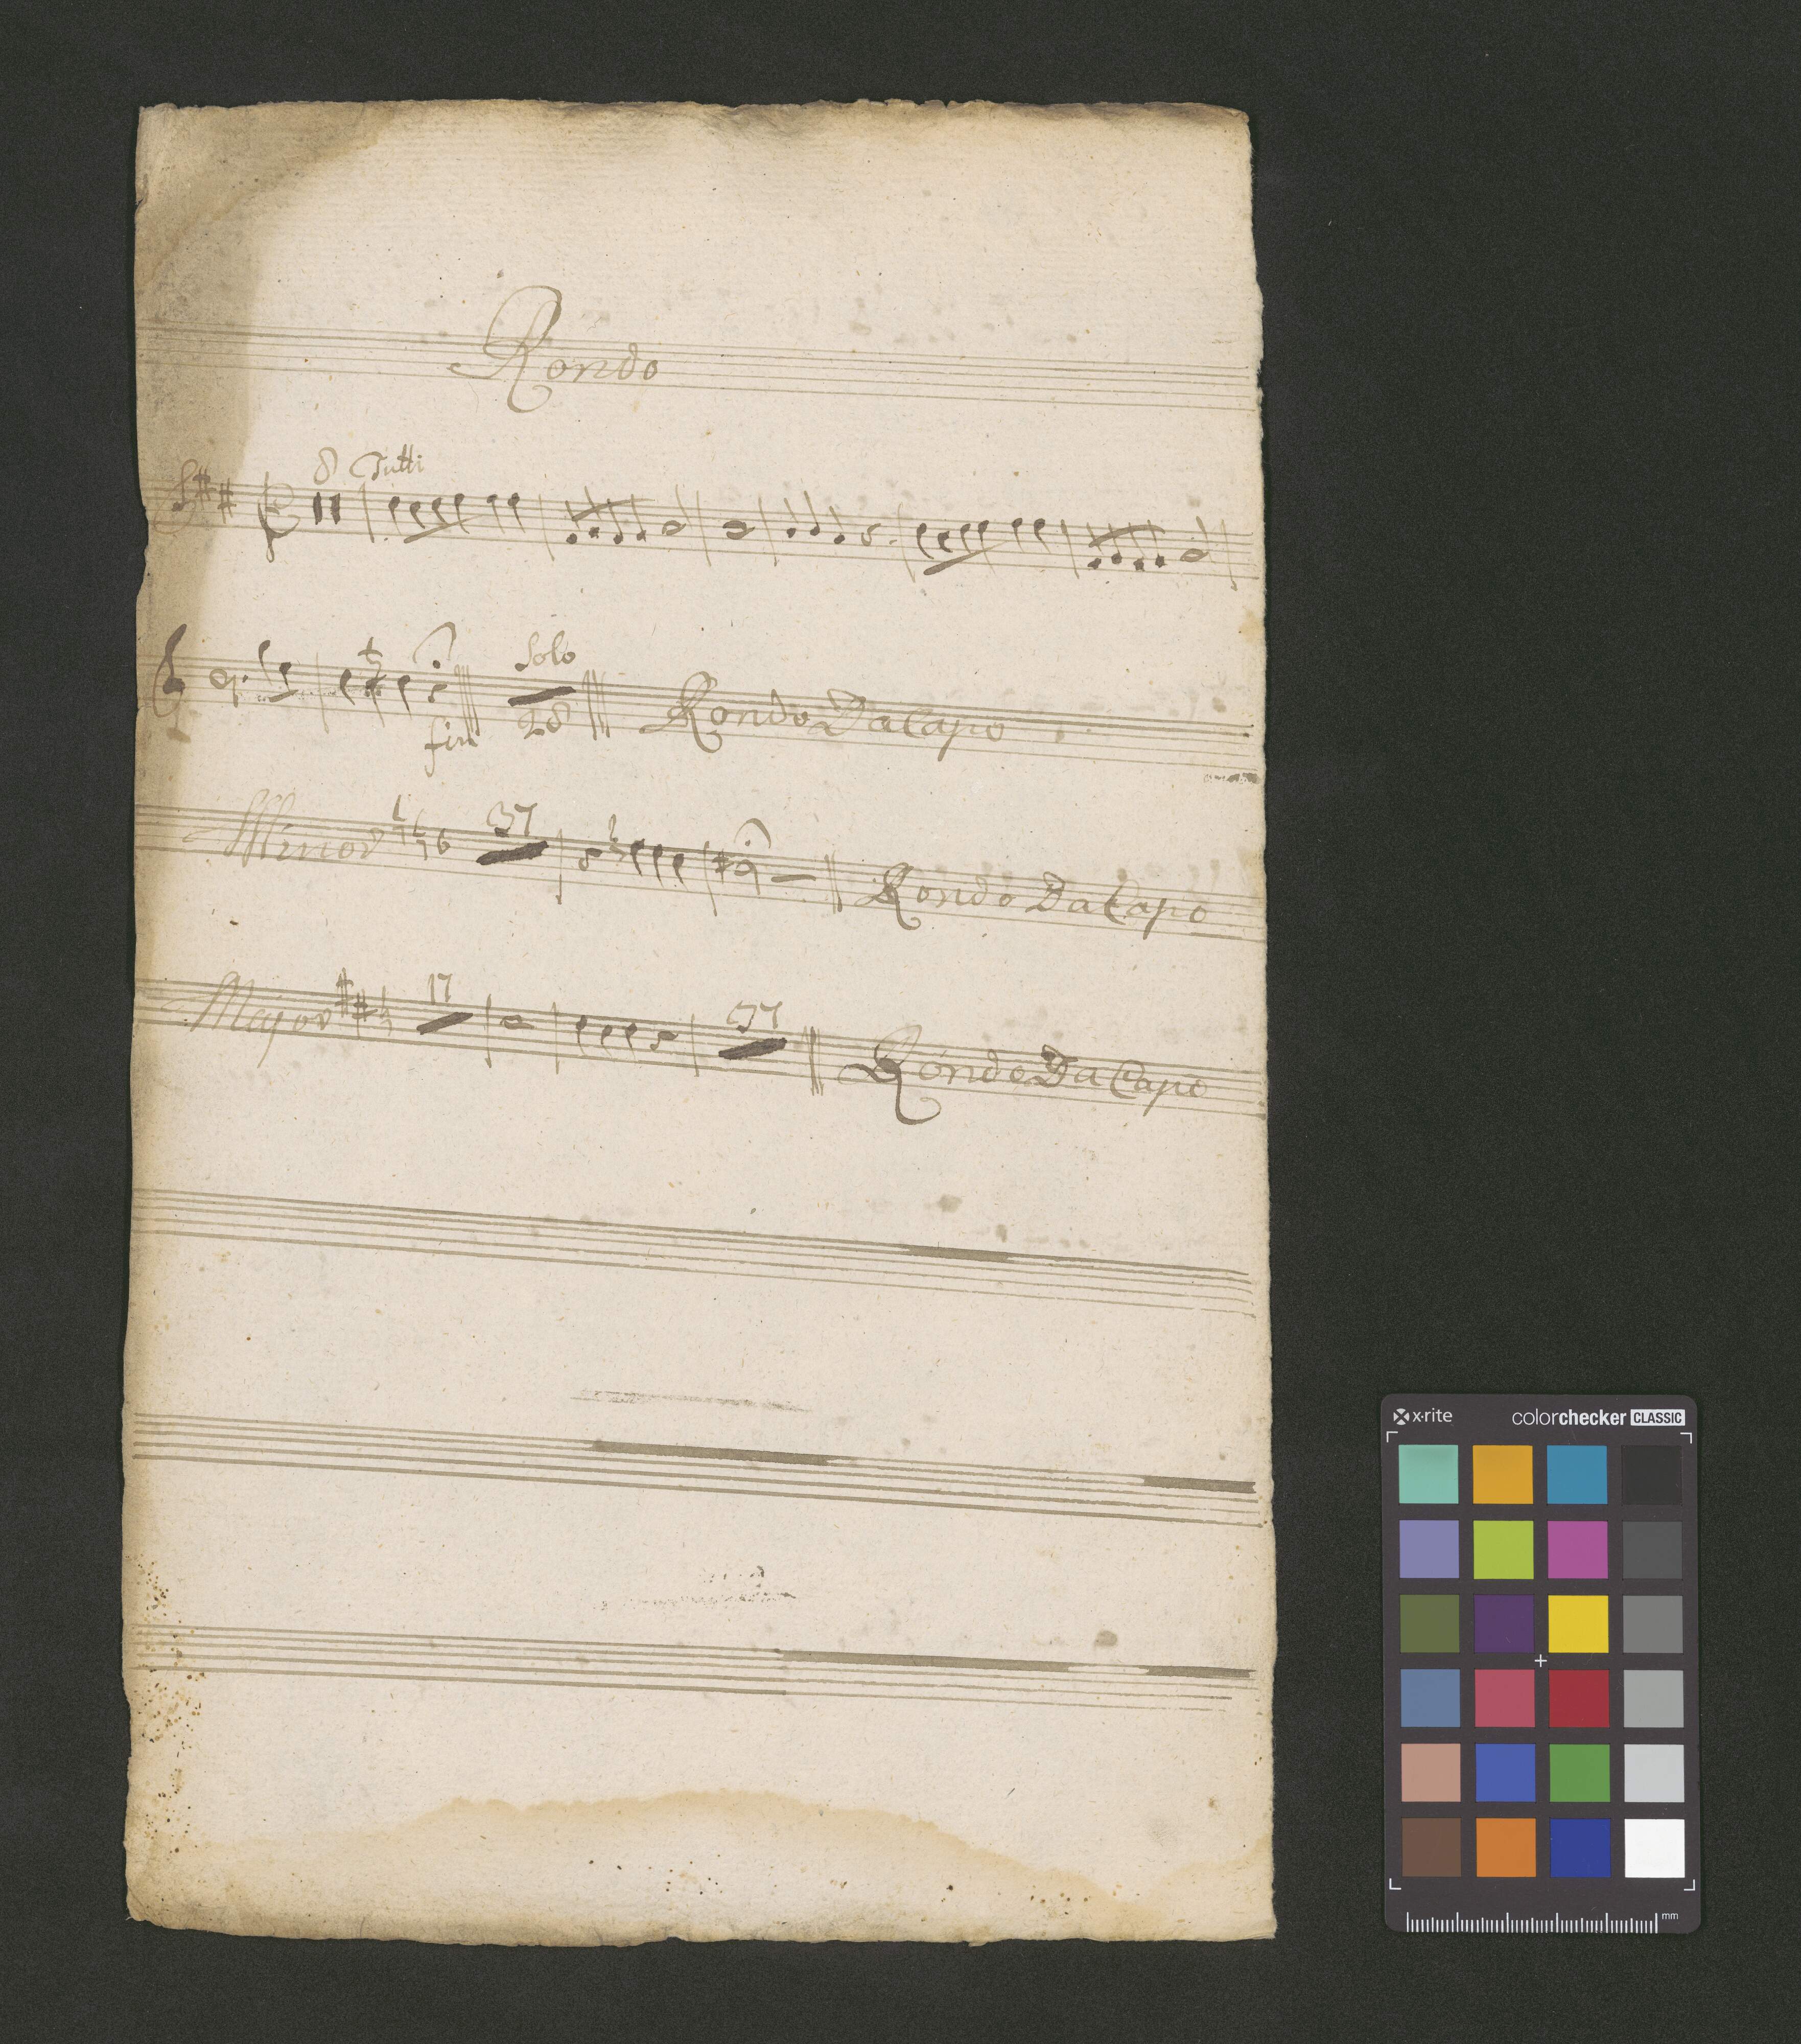 Rondo
8 Tutti
Solo
fin 28 Rondo Da Capo
Minor 37 Rondo Da Capo
Major 17 37 Rondo Da Capo
x·rite colorchecker CLASSIC
mm